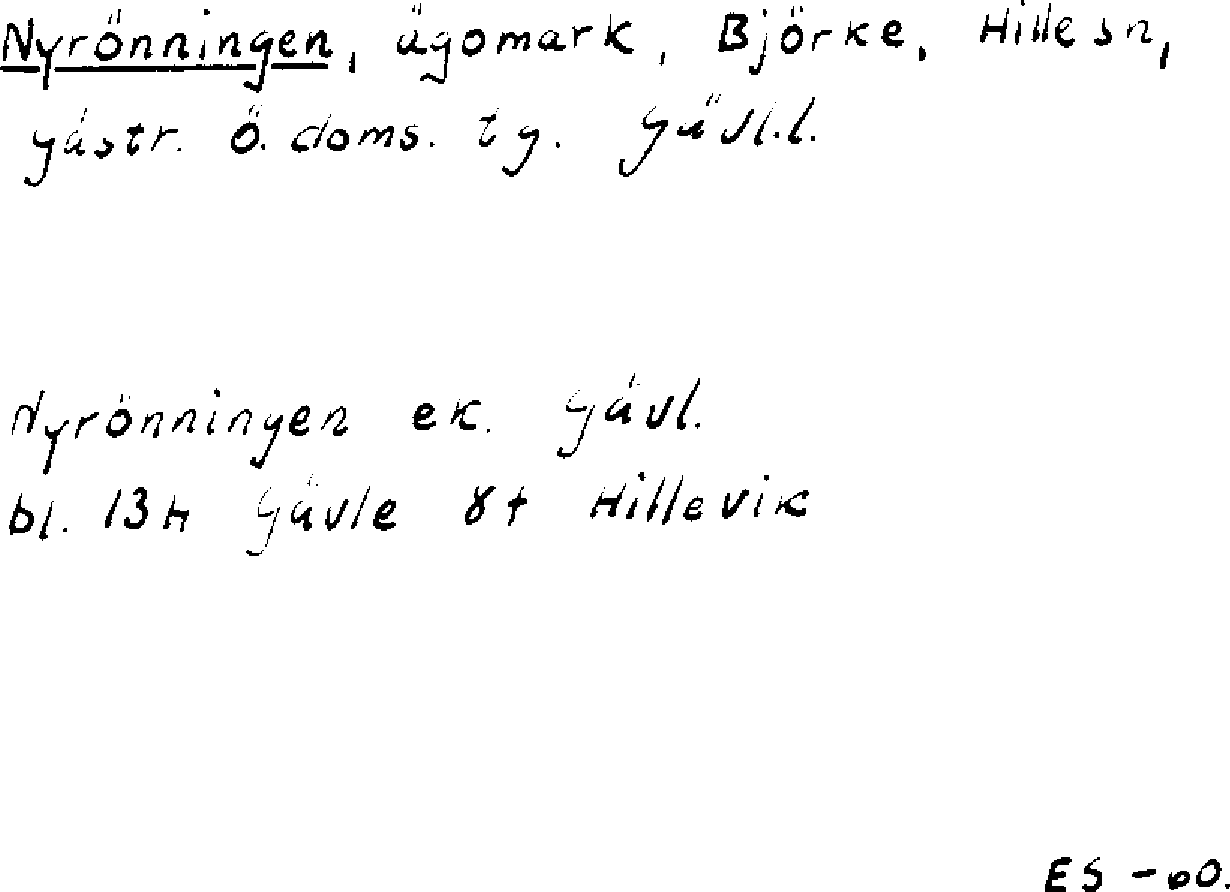 Nyrönningen, ägomark, Björke, Hille sn,
Gästr. Ö. doms. tg. Gävl.l.
Nyrönningen ek. Gävl.
bl. 13H Gävle 8f Hillevik
ES -60.